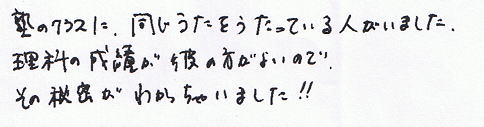 塾のクラスに、同じうたをうたっている人がいました。
理科の成績が彼の方がよいので、
その秘密がわかっちゃいました!!